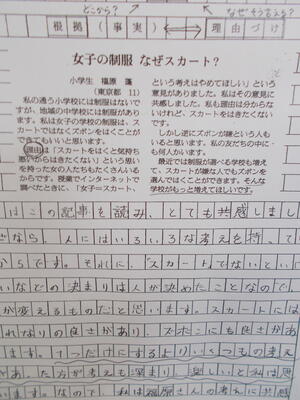 どこから?
なぜそう言える?
根拠(事実)
理由づけ
女子の制服 なぜスカート?
小学生 福原 蓬
(東京都 11)
私の通う小学校には制服はないですが、地域の中学校には制服があります。私は女子の学校の制服は、スカートではなくズボンをはくことができてもいいと思います。
理由は「スカートをはくと気持ち悪いからはきたくない」という思いを持った女の人たちもたくさんいるからです。授業でインターネットで調べたときに、「女子=スカート、という考えはやめてほしい」という意見がありました。私はその意見に共感しました。私も理由は分からないけれど、スカートをはきたくないです。
しかし逆にズボンが嫌という人もいると思います。私の友だちの中にも何人かいます。
最近では制服が選べる学校も増えて、スカートが嫌な人でもズボンを選んではくことができます。そんな学校がもっと増えてほしいです。
はこの記事を読み、とても共感しまし
なら、人にはいろいろな考えを持って
からです。それに、「スカートでないといけ
いなどの決まりは人が決めたことなので、
が変えるものだと思います。スカートには
れなりの良さがあり、ズボンにも良さがあ
ます。1つだけにするよりいくつもの考え
あった方が考えも深まり、楽しいと私は思
います。なので、私は福原さんの考えに共感